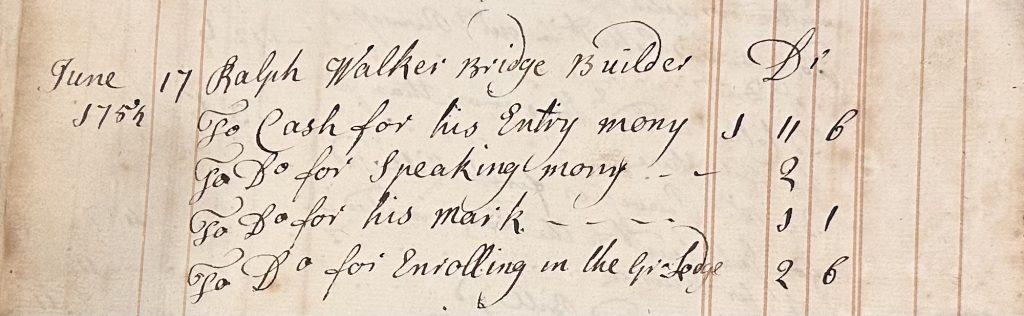 June 17 Ralph Walker Bridge Builder Dr.
1754
To Cash for his Entry mony 1 11 6
To Do for Speaking mony - - 2
To Do for his mark - - - - 1 1
To Do for Enrolling in the Gr Lodge 2 6